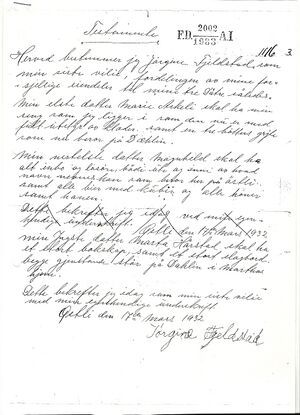 Testamente
ED 2002 AI
1983
1116 3
Herved bestemmer jeg Jørgine Fjeldstad, som
min siste vilie, fordelingen av mine for-
skjellige eiendeler til mine tre døtre således.
Min elste datter Marie skal ha min
seng som jeg ligger i som den nu er med
fullt utstyr av klær, samt en
som nu beror på Dahlin.
Min nestelste datter Magnhild skal ha
alt inbo og løsøre, både ute og inne av hvad
navn nevnes kan som beror her på
samt alle dyr med og alle høner
samt hanen.
Dette bekrefter jeg idag ved min egen-
hendige underskrift.
den 17de Mars 1932
min Yngste datter Marta Harstad skal ha
et stort bokskap, samt et stort slagbord
begge gjenstande står på Dahlin i Marthas
hjem.
Dette bekrefter jeg idag som min siste vilie
med min egenhendige underskrift.
den 17de Mars 1932
Jørgine Fjeldstad